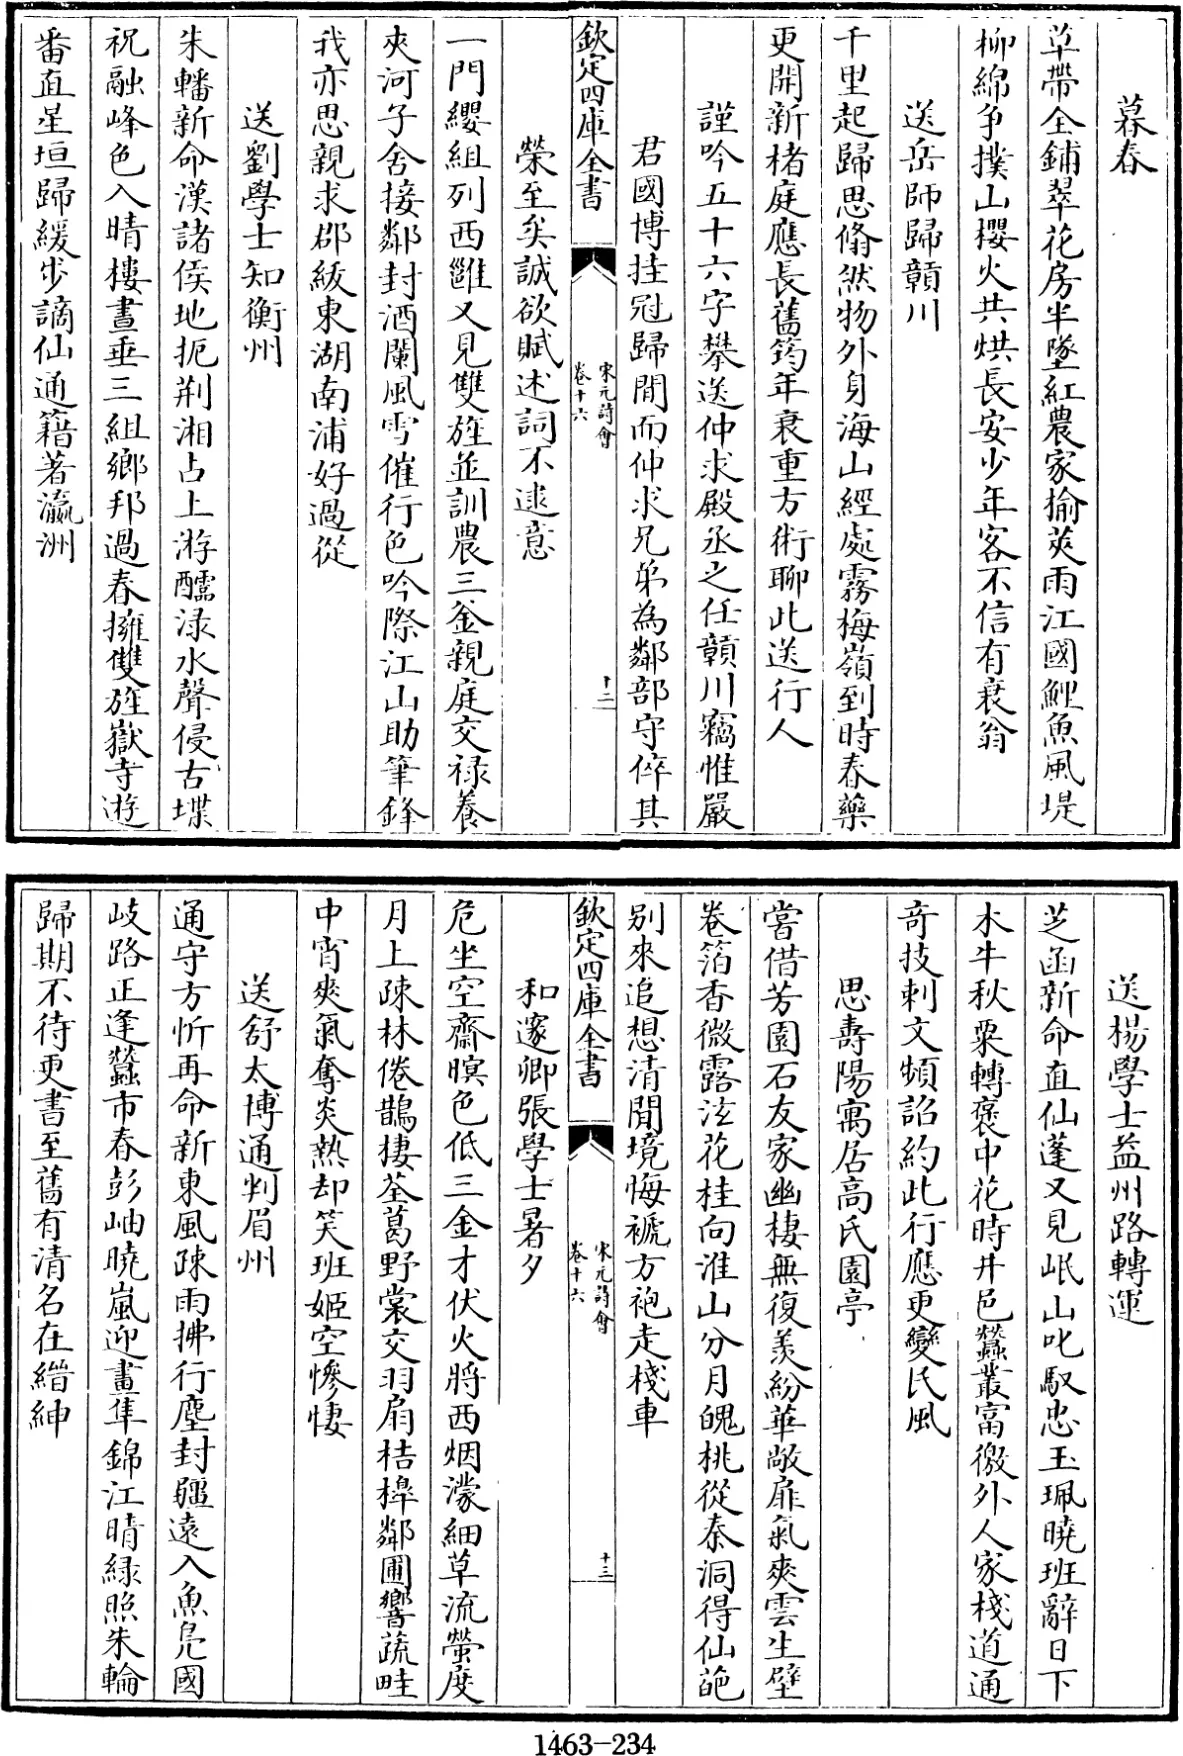 暮春
草帶全鋪翠花房半墜紅農家揄莢雨江國鯉魚風堤
柳綿争撲山櫻火共烘長安少年客不信有衰翁
送岳師歸贛川
千里起歸思翛然物外身海山經處霧梅嶺到時春藥
更開新楮庭應長舊筠年衰重方術聊此送行人
謹吟五十六字攀送仲求殿丞之任贛川竊惟嚴
君國博挂冠歸閒而仲求兄弟為鄰部守倅其
欽定四庫全書
宋元詩會
卷十六
十二
榮至矣誠欲賦述詞不逮意
一門纓組列西雝又見雙旌並訓農三釜親庭交祿養
夾河子舍接鄰封酒闌風雪催行色吟際江山助筆鋒
我亦思親求郡紱東湖南浦好過從
送劉學士知衡州
朱轓新命漢諸侯地扼荆湘占上游醽渌水聲侵古堞
祝融峰色入晴樓晝垂三組鄉邦過春擁雙旌嶽寺遊
番直星垣歸緩步謫仙通籍著瀛洲
送楊學士益州路轉運
芝函新命直仙蓬又見岷山叱馭忠玉珮曉班辭日下
木牛秋粟轉褒中花時井邑蠶叢富徼外人家棧道通
奇技刺文頻詔約此行應更變氏風
思壽陽寓居高氏園亭
嘗借芳園石友家幽棲無復羡紛華敞扉氣爽雲生壁
卷箔香微露泫花桂向淮山分月魄桃從秦洞得仙葩
别來追想清閒境悔褫方袍走棧車
欽定四庫全書
宋元詩會
卷十六
十三
和邃卿張學士暑夕
危坐空齋暝色低三金才伏火將西烟濛細草流螢度
月上疎林倦鵲棲荃葛野裳交羽扇桔槔鄰圃響蔬畦
中宵爽氣奪炎熱却笑班姬空慘悽
送舒太博通判眉州
通守方忻再命新東風疎雨拂行塵封疆遠入魚鳧國
岐路正逢蠶市春彭岫曉嵐迎畫隼錦江晴緑照朱輪
歸期不待更書至舊有清名在縉紳
1463-234